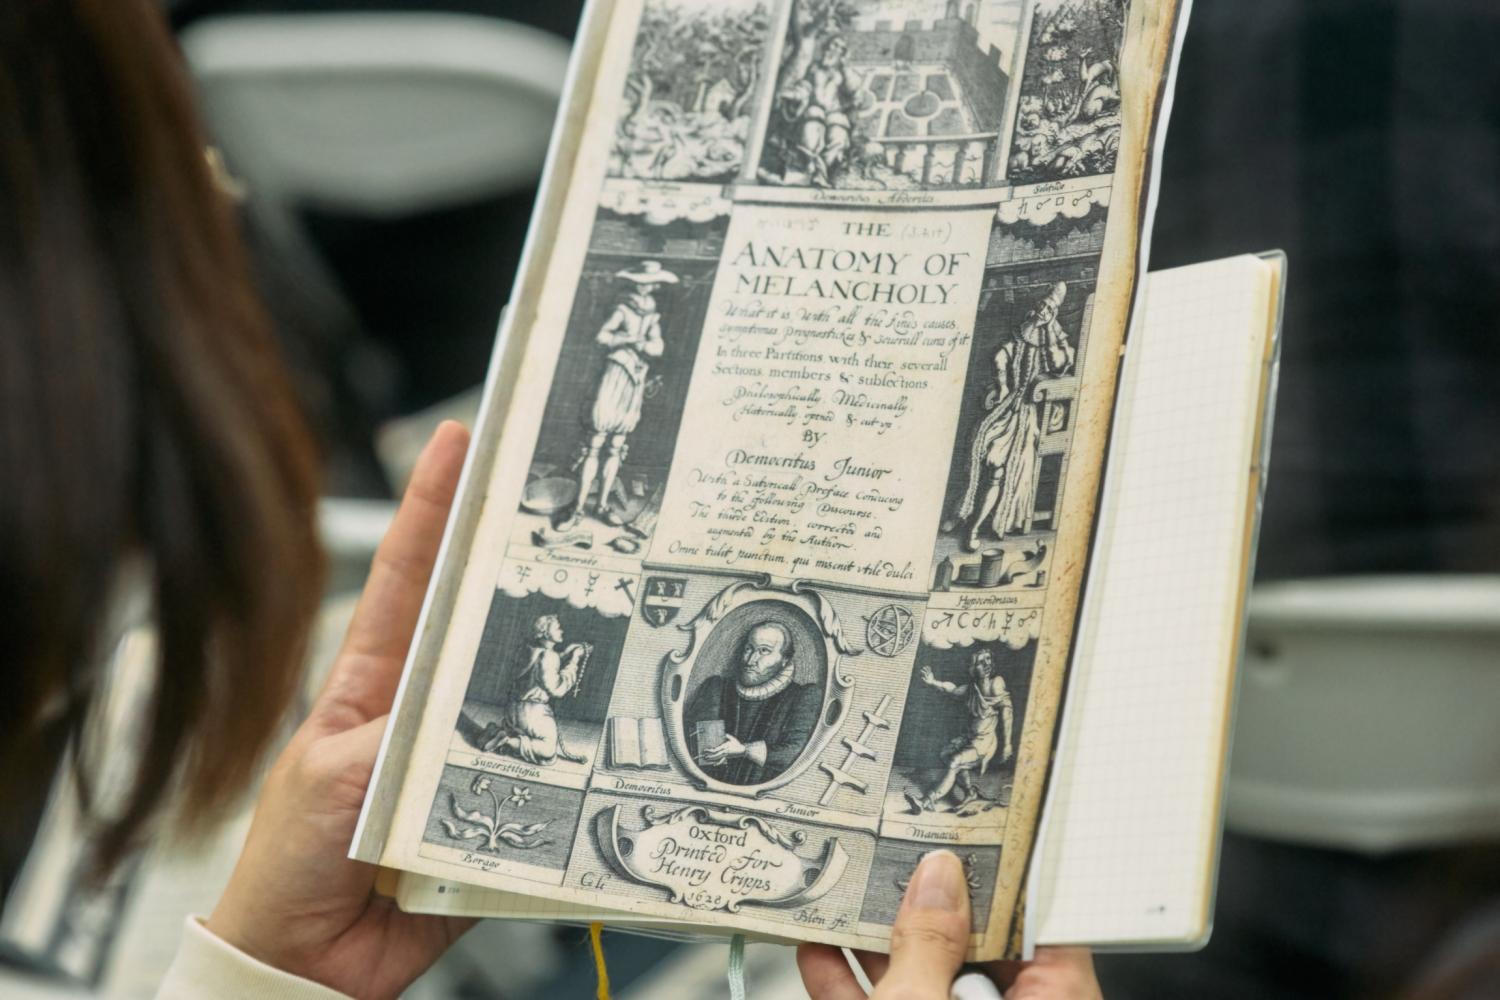 Democritus Abderites.
Solitudo.
THE
ANATOMY OF
MELANCHOLY.
What it is, With all the kinds causes,
symptomes, prognostickes & severall cures of it.
In three Partitions, with their severall
Sections, members & subsections.
Philosophically, Medicinally,
Historically, opened & cut up.
BY.
Democritus Junior.
With a Satyricall Preface Conducing
to the following Discourse.
The thirde Edition, corrected and
augmented by the Author.
Omne tulit punctum, qui miscuit utile dulci
Inamorato
Hypocondriacus
Superstitiosus
Democritus Junior
Maniacus
Borago
Oxford
Printed for
Henry Cripps.
1628
Blon fe: